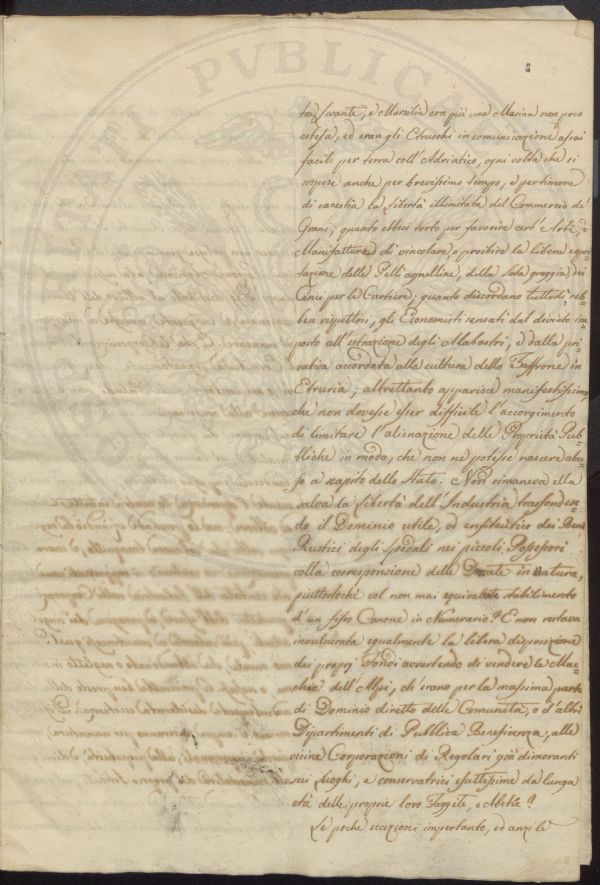 tra Levante, e Marsilia con più una Marina non poco
estesa, ed eran gli Etruschi in comunicazione assai
facile per terra coll'Adriatico, ogni volta che si
sospese anche per brevissimo tempo, e pertimore
di carestia la Libertà illimitata del Commercio de'
Grani; quanto ebbesi torto per favorire cert'Arti, e
Manifatture di vincolare, o proibire la libera espor=
tazione delle Pelli agnelline, della Seta greggia, dei
Cenci per le Cartiere; quanto discordano tuttodì, seb=
ben rispettosi, gli Economisti sensati dal divieto im=
posto all'estrazione degli Alabastri, e dalla pri=
vativa accordata alla cultura dello Zaffrone in
Etruria; altrettanto apparisce manifestissimo,
che non dovesse esser difficile l'accorgimento
di limitare l'alienazione delle Proprietà Pub=
bliche in modo, che non ne potesse nascere abu=
so a scapito dello Stato. Non rimaneva ella
salva la Libertà dell'Industria trasfonden=
do il Dominio utile, od enfiteutico dei Beni
Rustici degli Spedali nei piccoli Possessori
colla corresponsione delle Derrate in Natura,
piuttostochè col non mai equivalente stabilimento
d'un fisso Canone in Numerario? E non restava
invulnerata egualmente la libera disposizione
dei propoj Fondi avvertendo di vendere le Mac=
chie dell'Alpi, ch'erano per la massima parte
di Dominio diretto delle Comunità, o d'altri
Dipartimenti di Pubblica Beneficenza, alle
vicine Corporazioni di Regolari già dimoranti
sui Luoghi, e conservatrici esattissime da lunga
età delle proprie loro Faggete, e Abetie?
Le poche eccezioni importanto, ed anzi le